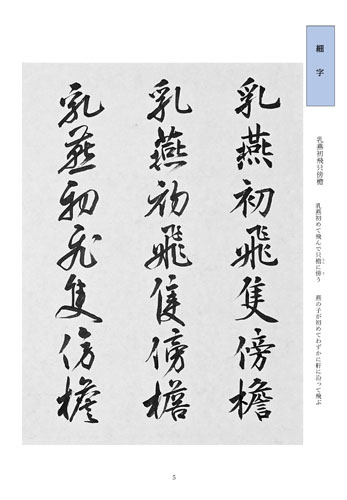 細字
乳燕初飛只傍檐
乳燕初めて飛んで只檐に傍う
燕の子が初めてわずかに軒に沿って飛ぶ
乳燕初飛隻傍檐
乳燕初飛隻傍檐
乳燕初飛隻傍檐
5